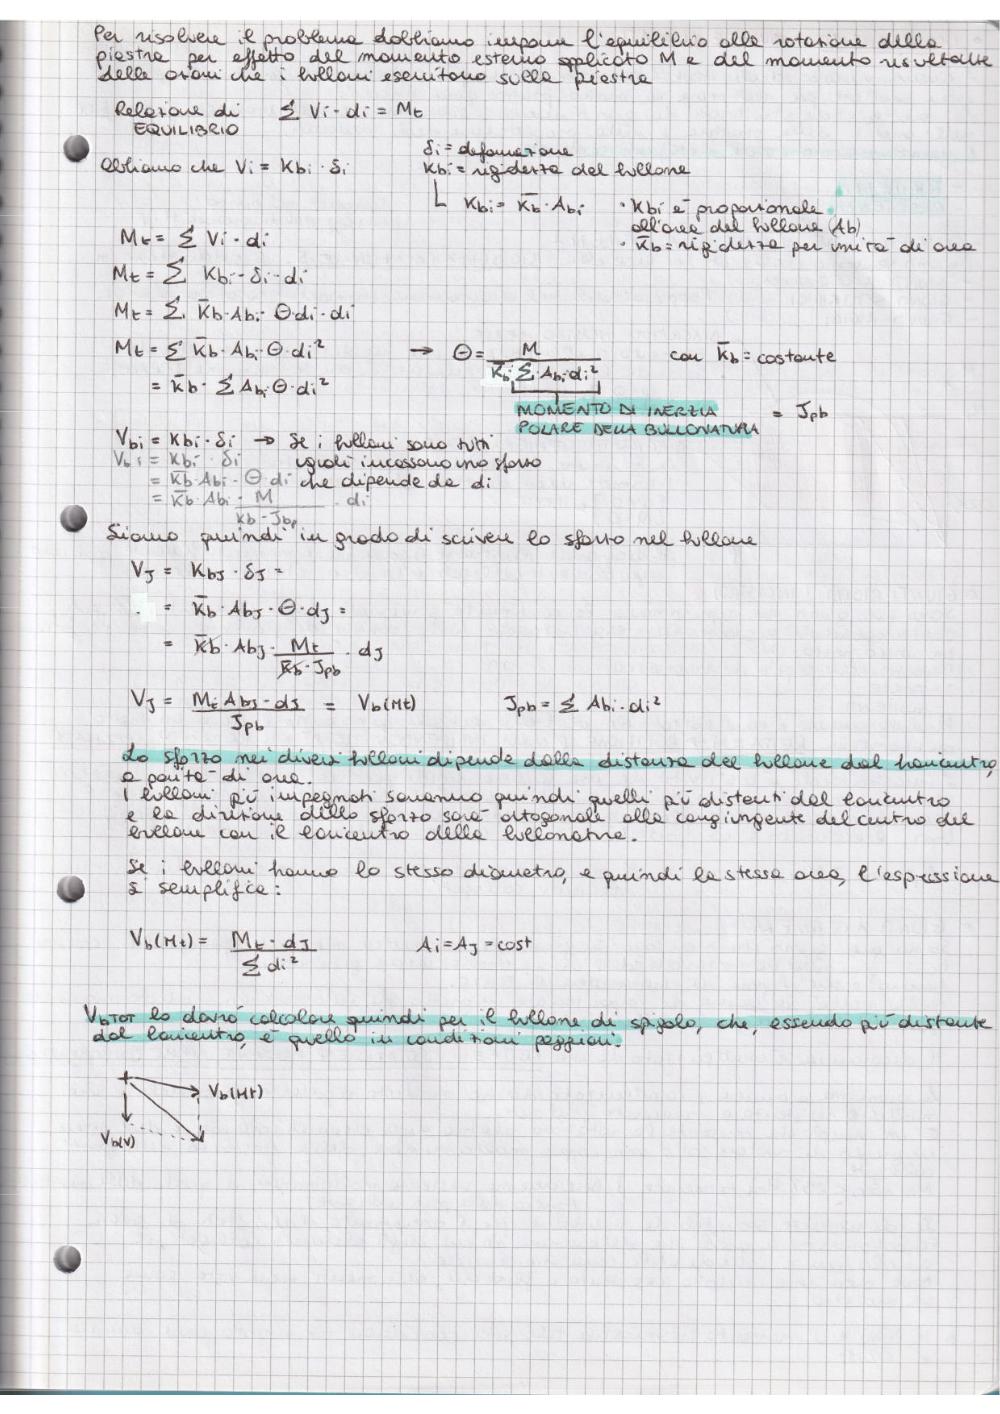 Per risolvere il problema dobbiamo imporre l'equilibrio alla rotazione della
piastra per effetto del momento esterno applicato M e del momento risultante
delle azioni che i bulloni esercitano sulla piastra
Relazione di EQUILIBRIO Σ Vi · di = Mt
δi = deformazione
Abbiamo che Vi = Kbi · δi Kbi = rigidezza del bullone
Kbi = K̄b · Abi · Kbi è proporzionale
all'area del bullone (Ab)
· K̄b = rigidezza per unità di area
Mt = Σ Vi · di
Mt = Σ Kbi · δi · di
Mt = Σ K̄b · Abi · Θ · di · di
Mt = Σ K̄b · Abi · Θ · di² → Θ = M / (K̄b · Σ Abi · di²) con K̄b = costante
= K̄b · Σ Abi Θ · di²
MOMENTO DI INERZIA
POLARE DELLA BULLONATURA = Jpb
Vbi = Kbi · δi → Se i bulloni sono tutti
Vbi = Kbi · δi uguali incassano uno sforzo
= K̄b · Abi · Θ di che dipende da di
= K̄b · Abi · M / (Kb · Jbp) · di
Siamo quindi in grado di scrivere lo sforzo nel bullone
VJ = KbJ · δJ =
= K̄b · AbJ · Θ · dJ =
= K̄b · AbJ · Mt / (K̄b · Jpb) · dJ
VJ = Mt AbJ · dJ / Jpb = Vb(Mt) Jpb = Σ Abi · di²
Lo sforzo nei diversi bulloni dipende dalla distanza del bullone dal baricentro,
a parità di area.
I bulloni più impegnati saranno quindi quelli più distanti dal baricentro
e la direzione dello sforzo sarà ortogonale alla congiungente del centro del
bullone con il baricentro della bullonatura.
Se i bulloni hanno lo stesso diametro, e quindi la stessa area, l'espressione
si semplifica:
Vb(Mt) = Mt · dJ / Σ di² Ai = AJ = cost
VbTOT lo dovrò calcolare quindi per il bullone di spigolo, che, essendo più distante
dal baricentro, è quello in condizioni peggiori.
Vb(Mt)
Vb(V)